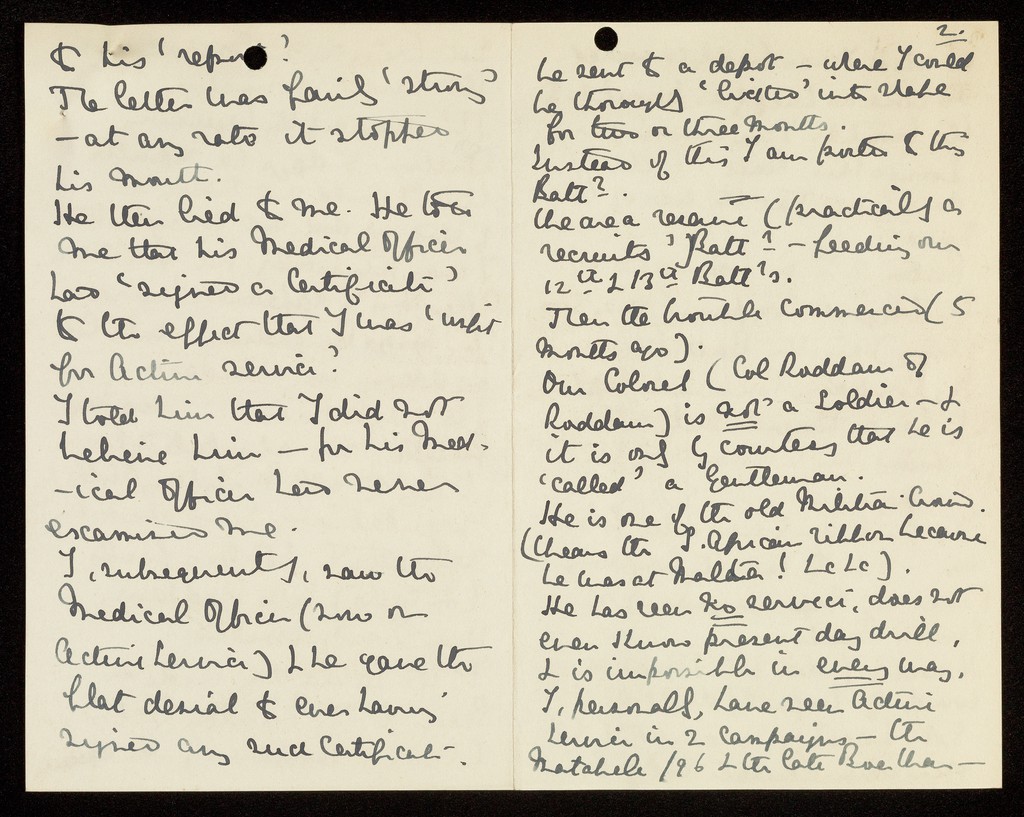 to his 'report'?
The letter was fairly 'strong'
- at any rate it stopped
his mouth.
He then lied to me. He told
me that his Medical Officer
had 'signed a Certificate'
to the effect that I was 'unfit
for Active service'?
I told him that I did not
believe him - for his Med-
-ical Officer had never
examined me.
I, subsequently, saw the
Medical Officer (now on
Active Service) & he gave the
flat denial to ever having
signed any such Certificate.
2.
be sent to a depot - where I could
be thoroughly 'licked' into shape
for two or three months.
Instead of this I am posted to this
Batt?.
We are a reserve (practically a
recruits' Batt? - feeding our
12th & 13th Batt?s.
Then the trouble commenced (5
months ago).
Our Colonel (Col Roddam of
Roddam) is not a Soldier - &
it is only by courtesy that he is
'called' a Gentleman.
He is one of the old Militia Crowd.
(Wears the S. African ribbon because
he was at Malta! &c &c).
He has seen no service, does not
even know present day drill,
& is impossible in every way.
I, personally, have seen Active
Service in 2 campaigns - the
Matabele /96 & the late Boer War -